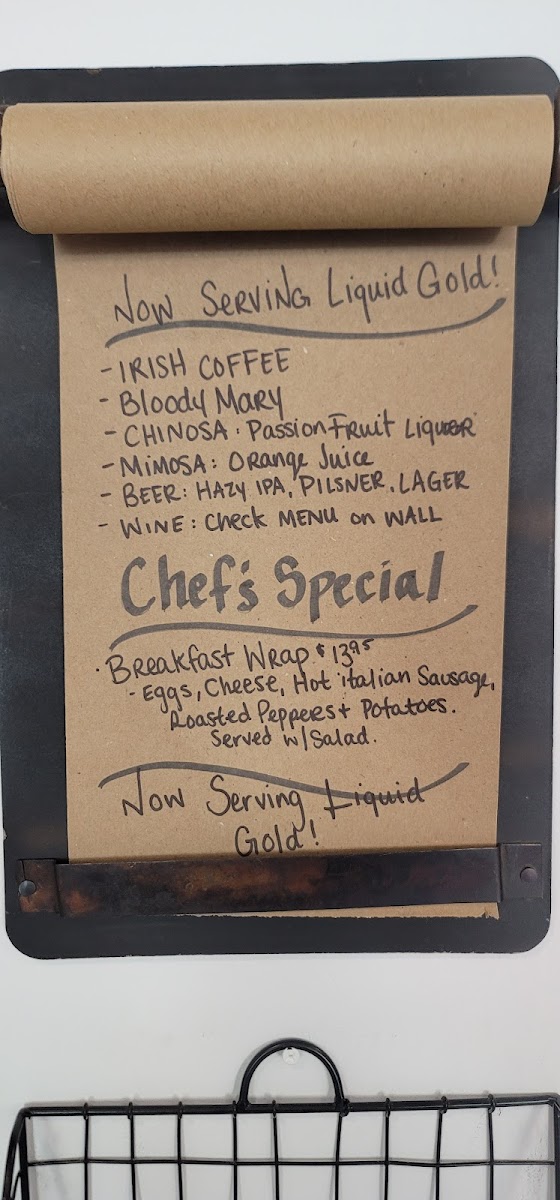 Now SERVING Liquid Gold!
- IRISH COFFEE
- Bloody Mary
- CHINOSA · Passion Fruit Liquor
- MiMOSA: Orange Juice
- BEER: HAZY IPA, PILSNER, LAGER
- WINE: Check MENU on WALL
Chef's Special
· Breakfast Wrap $13.95
- Eggs, Cheese, Hot italian Sausage,
Roasted Peppers + Potatoes.
Served w/Salad.
Now Serving Liquid
Gold!